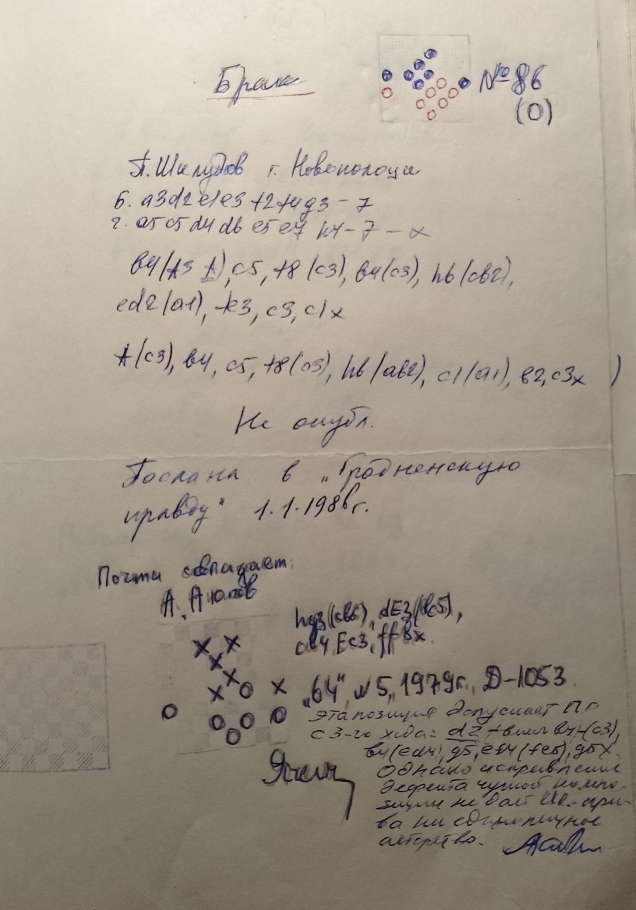 Брак
№ 86
(О)
П. Шклудов г. Новополоцк
б. a3 d2 e1 e3 f2 f4 g3 – 7
ч. a5 c5 d4 d6 e5 e7 h4 – 7 – x
b4 (A3 A), c5, f8 (c3), b4 (c3), h6 (cb2),
ed2 (a1), c3, c1x
A (c3), b4, c5, f8 (c3), h6 (ab2), c1 (a1), b2, c3x )
Не опубл.
Послана в „Гродненскую
правду" 1.1.1986г.
Почти совпадает:
А.
hg3 (cb6), dE3 (bc5),
Ec3, ff8x.
„64", №5, 1979г., Д-1053.
Эта позиция допускает ПР
с 3-го хода: d2
b4 (ed4), g5, ef4 (fe5), g5x.
Однако исправление
дефекта чужой компо-
зиции не даёт
ва ни единоличное
авторство.